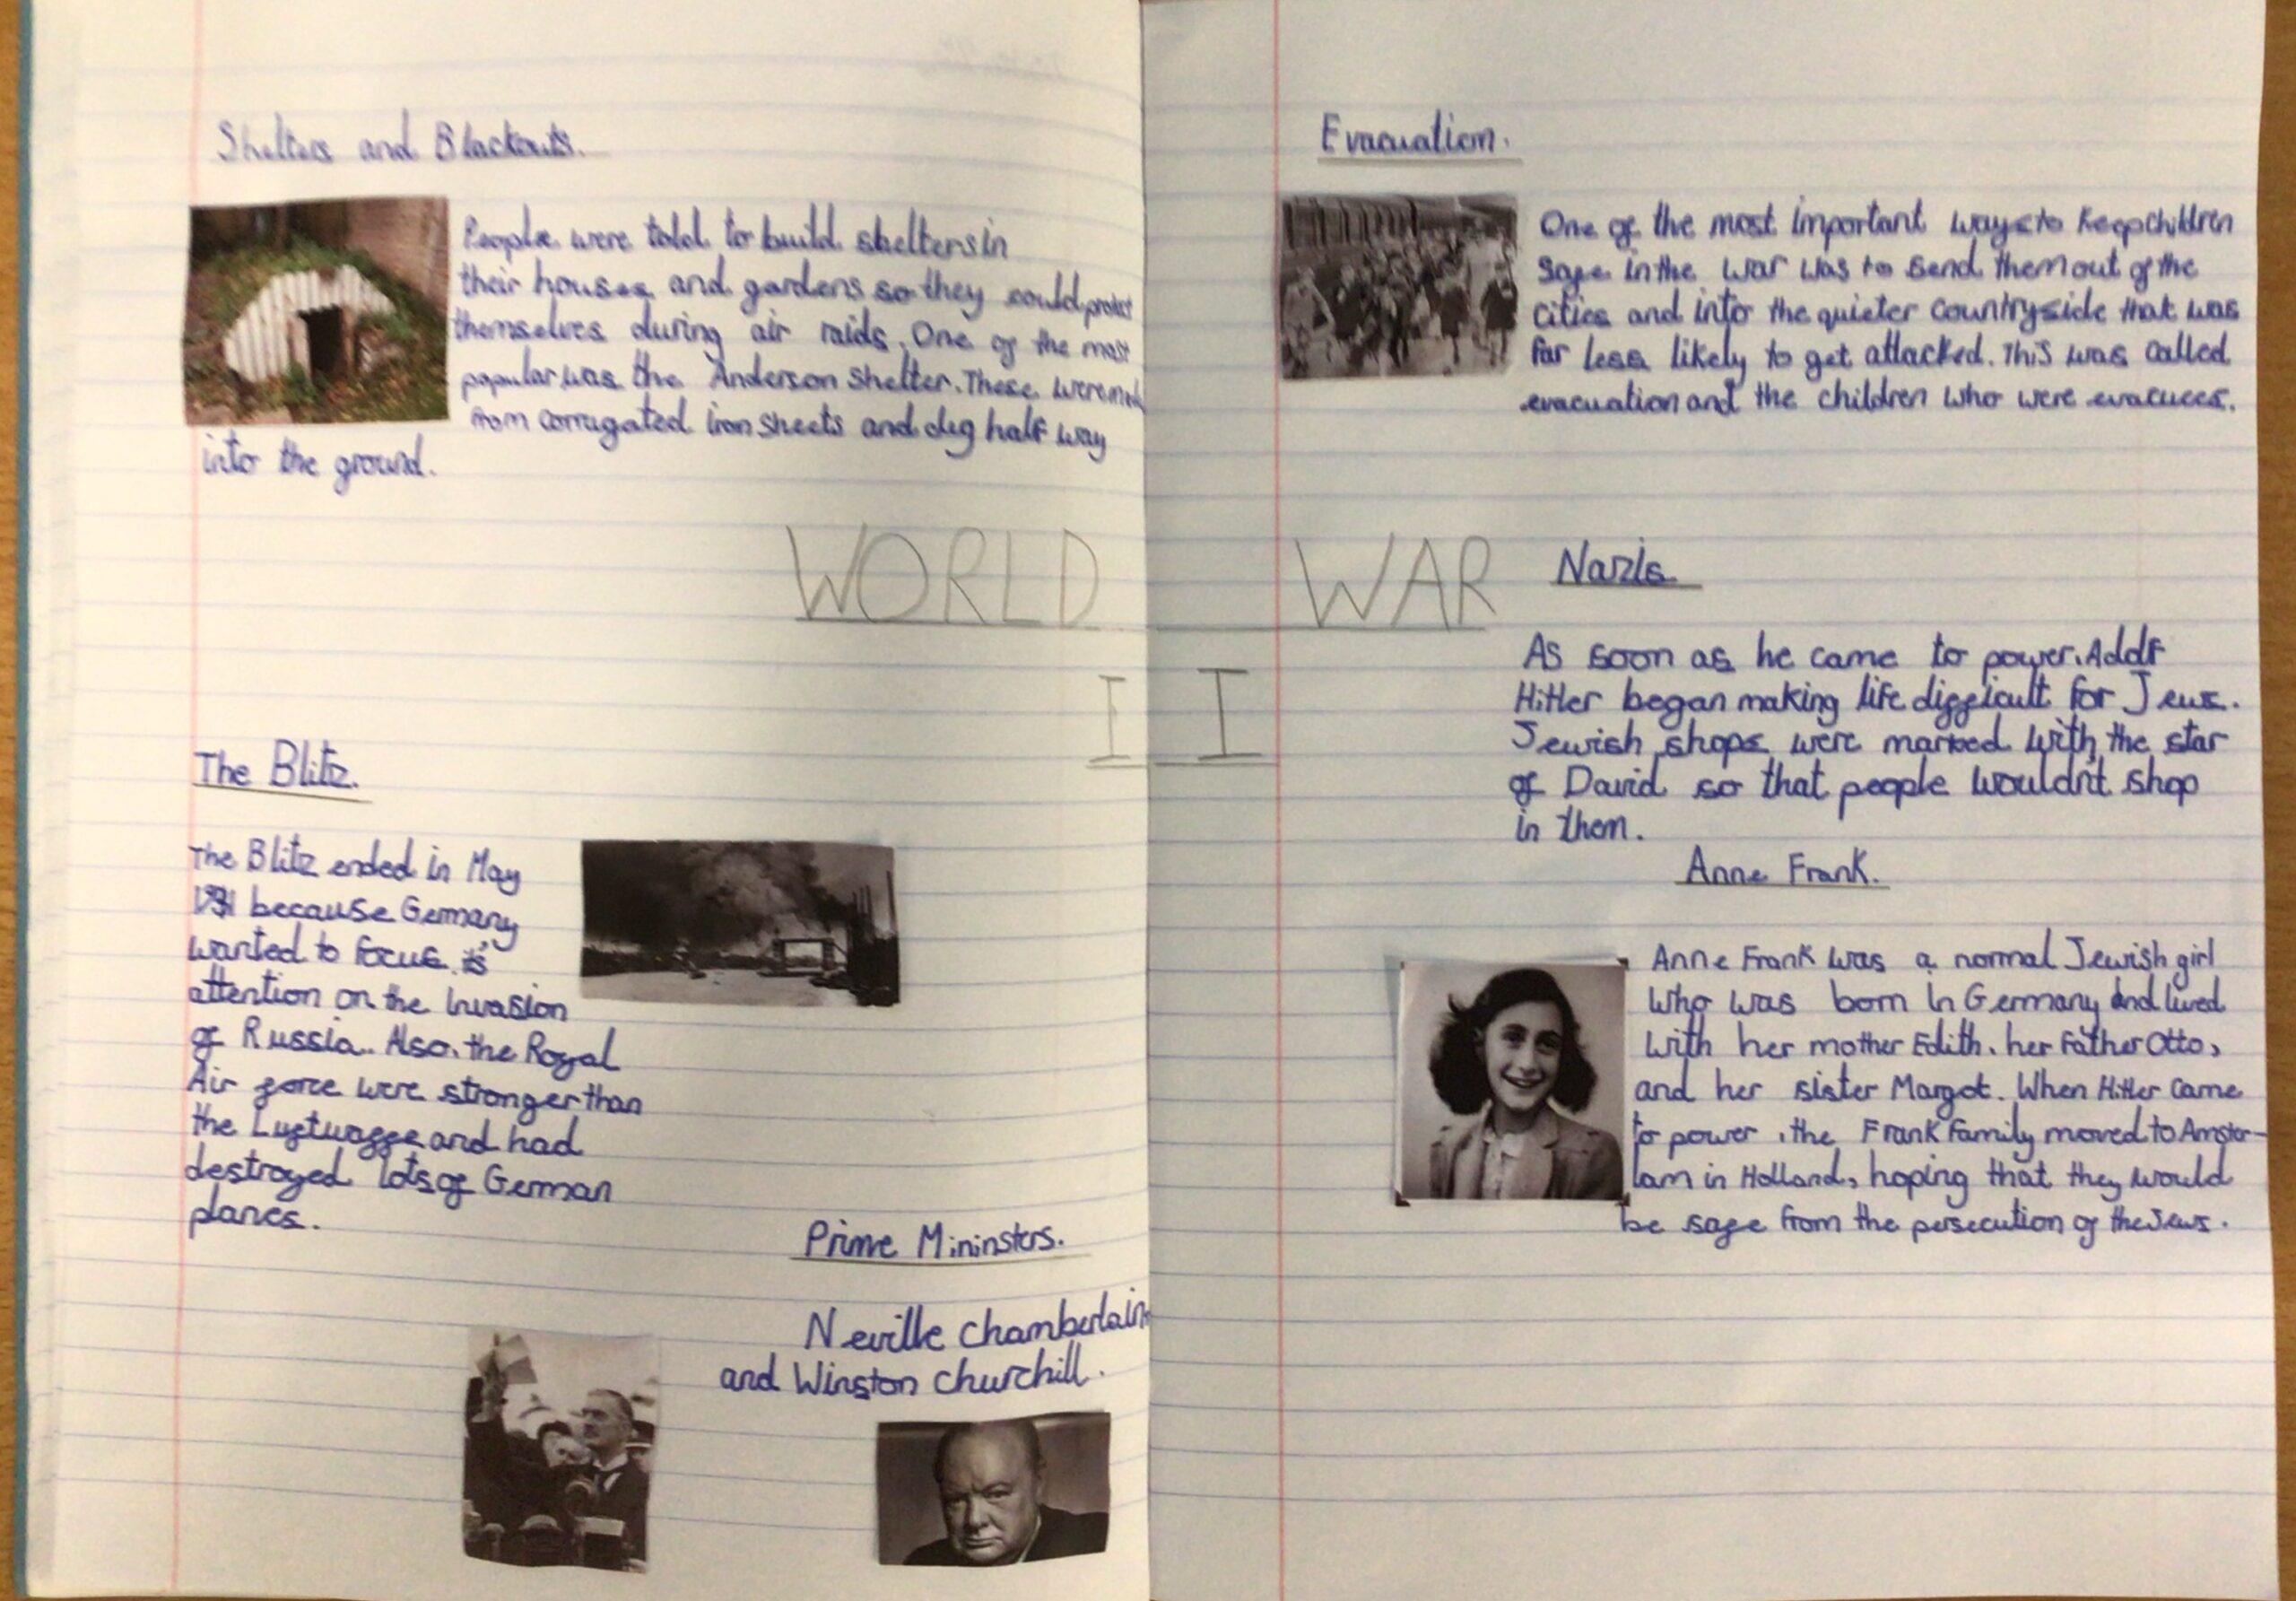 Shelters and Blackouts.
People were told to build shelters in
their houses and gardens so they could protect
themselves during air raids. One of the most
popular was the Anderson shelter. These were
from corrugated iron sheets and dug half way
into the ground.
WORLD WAR
II
The Blitz.
The Blitz ended in May
because Germany
wanted to focus is
attention on the invasion
of Russia. Also, the Royal
Air force were stronger than
the Luftwaffe and had
destroyed lots of German
planes.
Prime Mininsters.
Neville Chamberlain
and Winston churchill.
Evacuation.
One of the most important ways to keep children
safe in the war was to send them out of the
cities and into the quieter countryside that was
far less likely to get attacked. This was called
evacuation and the children who were evacuees.
Nazis
As soon as he came to power, Adolf
Hitler began making life difficult for Jews.
Jewish shops were marked with the star
of David so that people wouldn't shop
in them.
Anne Frank.
Anne Frank was a normal Jewish girl
who was born in Germany and lived
with her mother Edith, her father Otto,
and her sister Margot. When Hitler came
to power, the Frank family moved to Amster-
dam in Holland, hoping that they would
be safe from the persecution of the Jews.